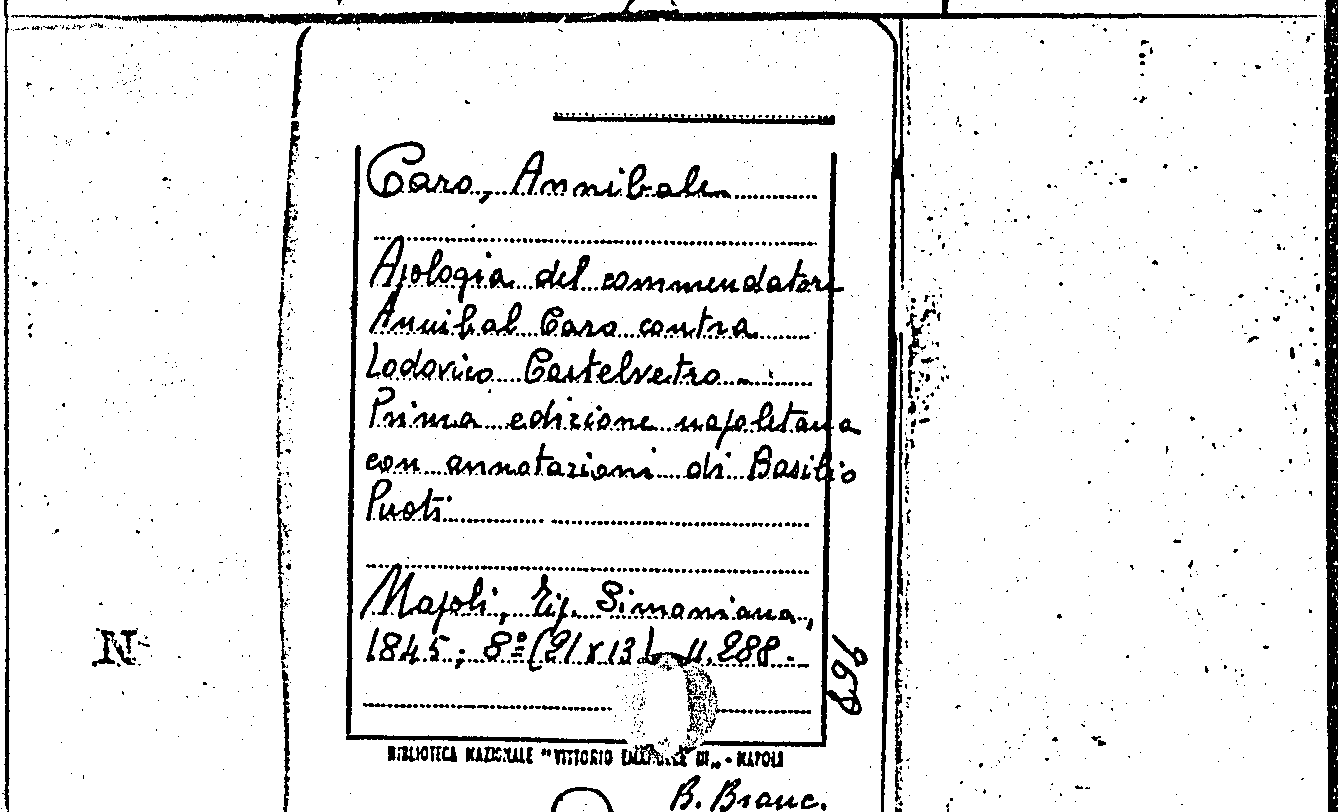 Caro, Annibale
Apologia del commendatore
Annibal Caro contra
Lodovico Castelvetro
Prima edizione napoletana
con annotazioni di Basilio
Puoti
Napoli, Tip. Simoniana,
1845; 8º (21x13) 288.
968
N
BIBLIOTECA NAZIONALE "VITTORIO EMANUELE III" - NAPOLI
B. Branc.